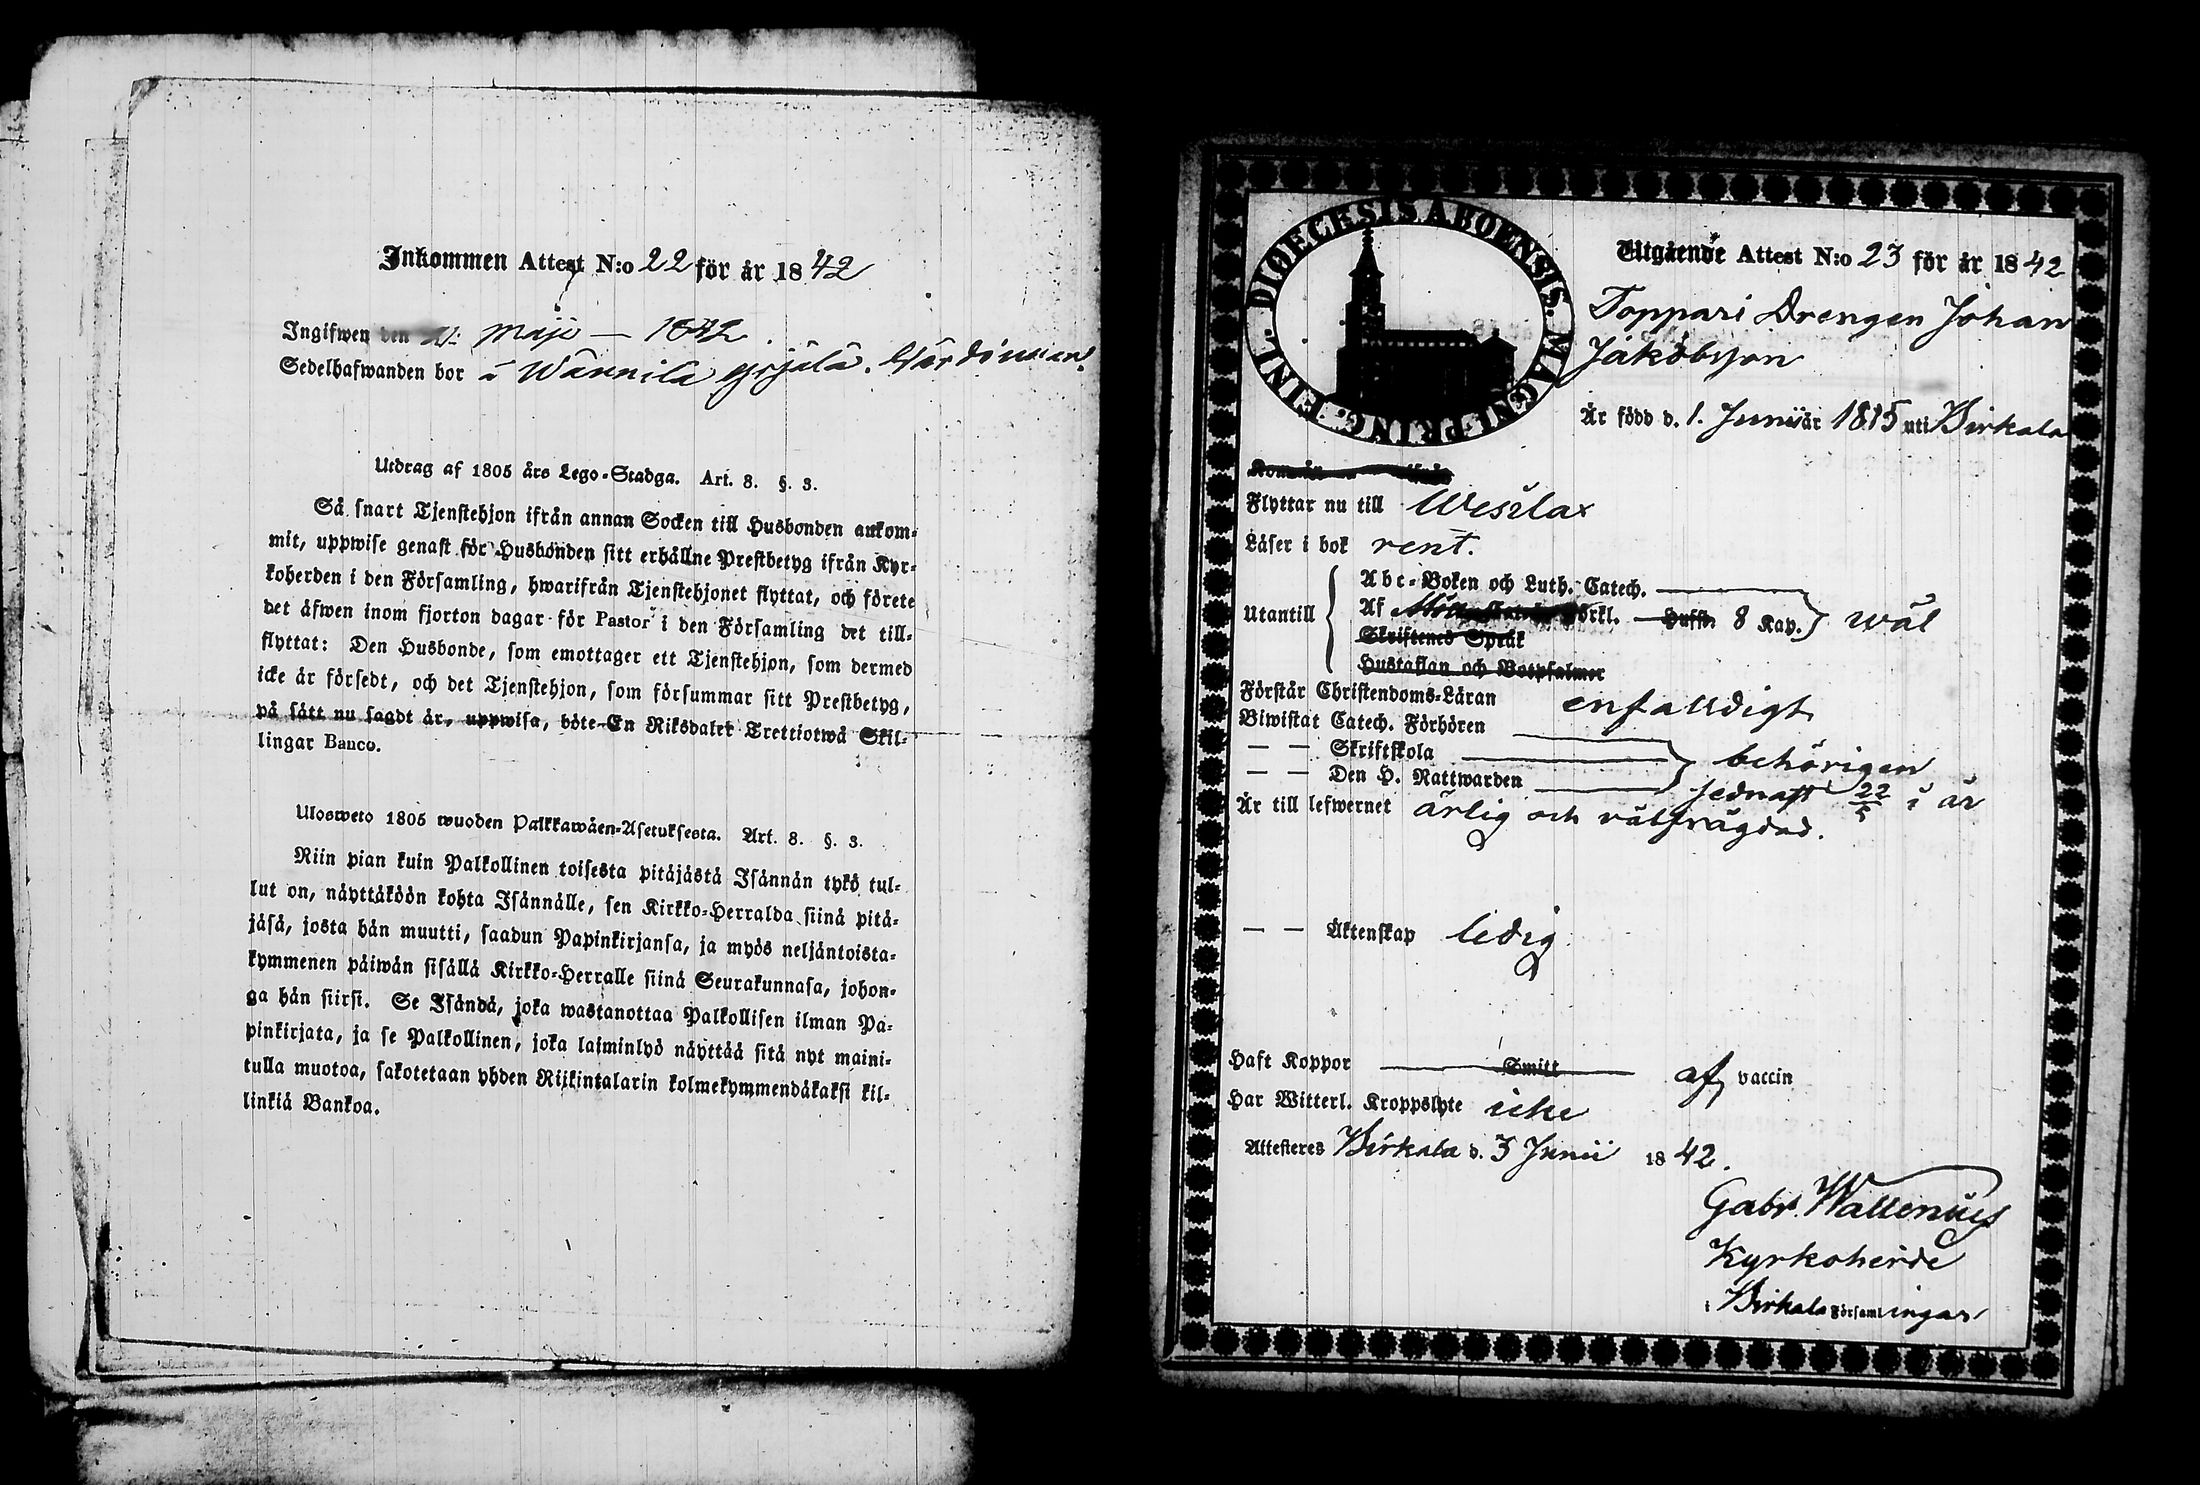 Inkommen Attest N:o 22 för år 1842
Ingifwen den Maji — 1842
Sedelhafwanden bor å Wännilä
Utdrag af 1805 års Lego-Stadga. Art. 8. §. 3.
Så snart Tjenstehjon ifrån annan Socken till Husbonden ankom-
mit, uppwise genast för Husbonden sitt erhållne Prestbetyg ifrån Kyr-
koherden i den Församling, hwarifrån Tjenstehjonet flyttat, och förete
det äfwen inom fjorton dagar för Pastor i den Församling det till-
flyttat: Den Husbonde, som emottager ett Tjenstehjon, som dermed
icke är försedt, och det Tjenstehjon, som försummar sitt Prestbetyg,
på sätt nu sagdt är, uppwisa, böte En Riksdaler Trettiotwå Skil-
lingar Banco.
Ulosweto 1805 wuoden Palkkawäen-Asetuksesta. Art. 8. §. 3.
Niin pian kuin Palkollinen toisesta pitäjästä Isännän tykö tul-
lut on, näyttäköön kohta Isännälle, sen Kirkko-Herralda siinä pitä-
jäsä, josta hän muutti, saadun Papinkirjansa, ja myös neljäntoista-
kymmenen päiwän sisällä Kirkko-Herralle siinä Seurakunnasa, johon-
ga hän siirsi. Se Isändä, joka wastanottaa Palkollisen ilman Pa-
pinkirjata, ja se Palkollinen, joka laiminlyö näyttää sitä nyt maini-
tulla muotoa, sakotetaan yhden Rijkintalarin kolmekymmendäkaksi kil-
linkiä Bankoa.
DIOECESIS ABOENSIS. MAGNI PRINC. FINL.
Utgående Attest N:o 23 för år 1842
Toppari Drengen Johan
Jakobsson
Är född d. 1. Junii år 1815 uti Birkala
Flyttar nu till Wesilax
Läser i bok rent.
Utantill
Abc-Boken och Luth. Catech.
Af Förkl. Hufst. 8 Kap. wäl
Skriftenes Språk
Hustaflan och Botpsalmer
Förstår Christendoms-Läran enfalldigt
Biwistat Catech. Förhören
— — Skriftskola behörigen
— — Den H. Nattwarden sednast 22/5 i år
Är till lefwernet ärlig och välfrägdad.
— — Äktenskap ledig
Haft Koppor Smitt af vaccin
Har Witterl. Kroppslyte icke
Attesteres Birkala d. 3 Junii 1842.
Gabr. Wallenius
Kyrkoherde
i Birkala Församlingar